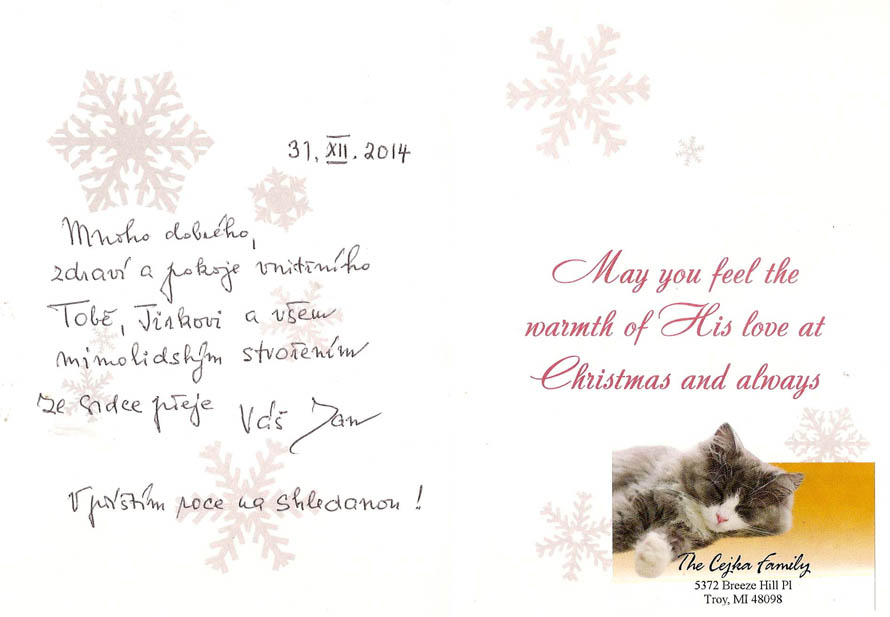 31. XII. 2014
Mnoho dobrého,
zdraví a pokoje vnitřního
Tobě, Jirkovi a všem
mimolidským stvořením
ze srdce přeje Váš Jan
V příštím roce na shledanou!
May you feel the
warmth of His love at
Christmas and always
The Cejka Family
5372 Breeze Hill Pl
Troy, MI 48098